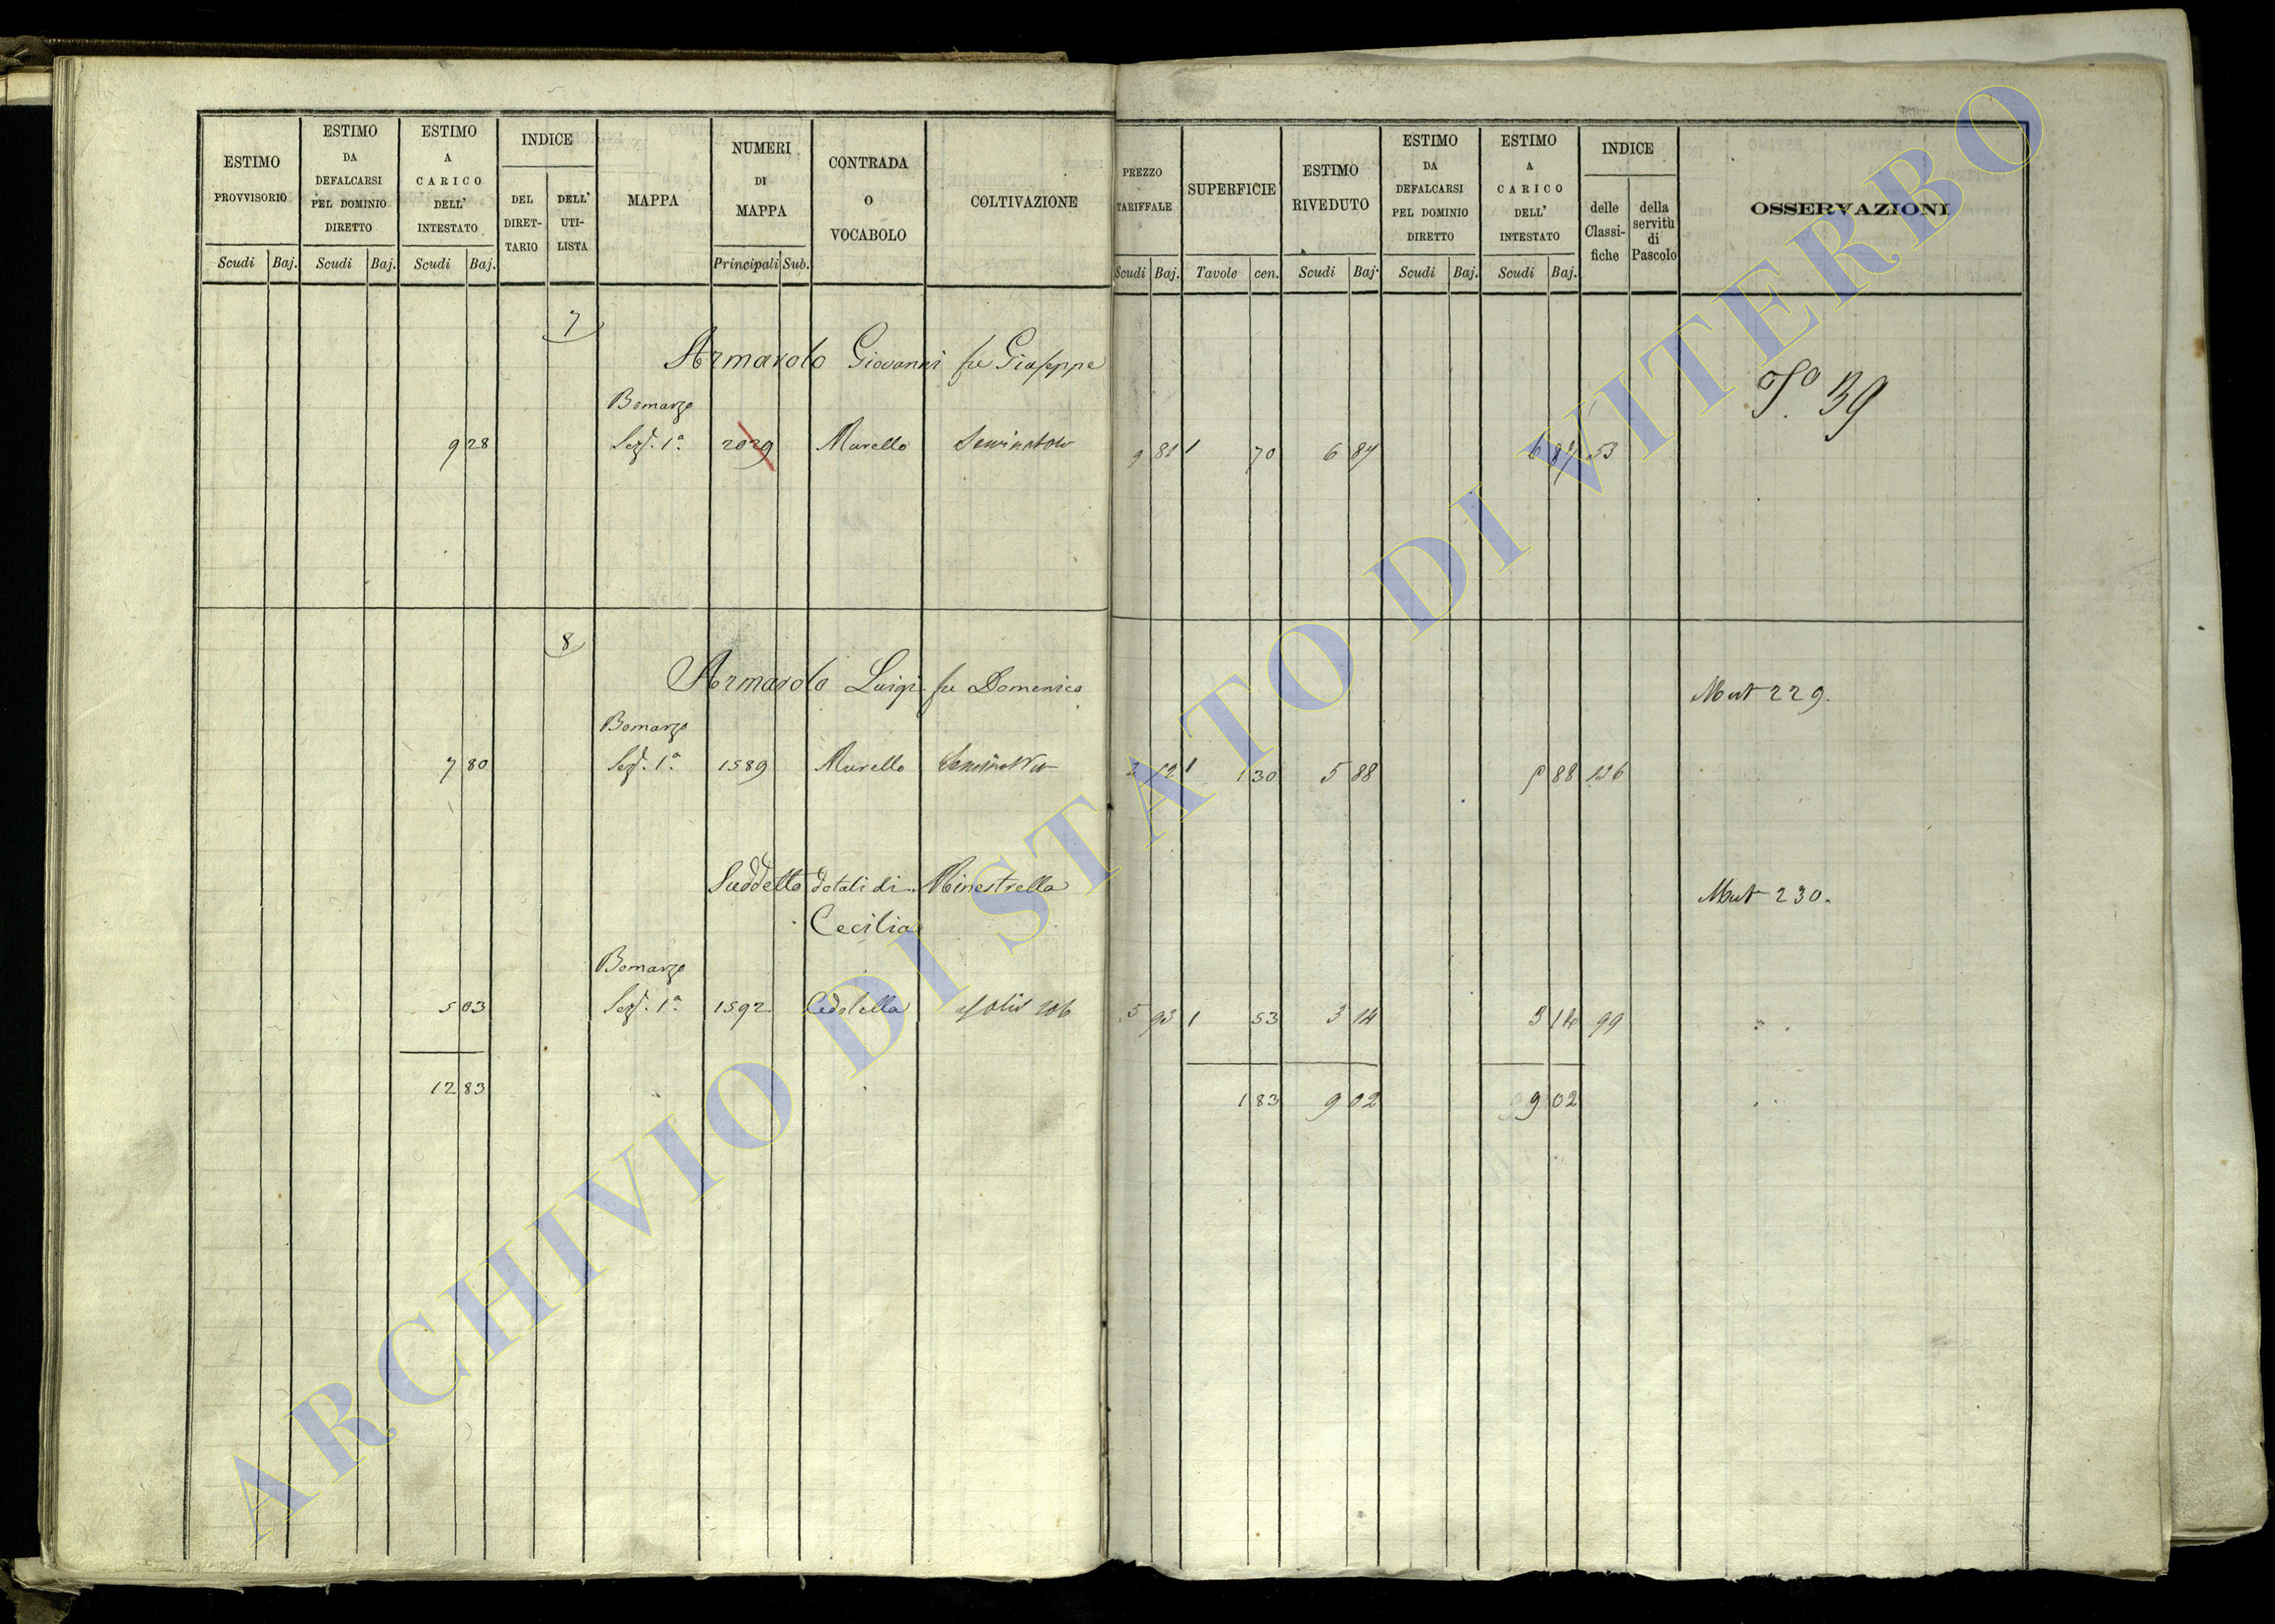 ESTIMO PROVVISORIO
Scudi Baj.
ESTIMO DA DEFALCARSI PEL DOMINIO DIRETTO
Scudi Baj.
ESTIMO A CARICO DELL' INTESTATO
Scudi Baj.
INDICE
DEL DIRET-TARIO
DELL' UTI-LISTA
MAPPA
NUMERI DI MAPPA
Principali Sub.
CONTRADA O VOCABOLO
COLTIVAZIONE
PREZZO TARIFFALE
Scudi Baj.
SUPERFICIE
Tavole cen.
ESTIMO RIVEDUTO
Scudi Baj.
ESTIMO DA DEFALCARSI PEL DOMINIO DIRETTO
Scudi Baj.
ESTIMO A CARICO DELL' INTESTATO
Scudi Baj.
INDICE
delle Classi-fiche
della servitù di Pascolo
OSSERVAZIONI
7
Armarolo Giovanni fu Giuseppe
Bomarzo
9 28 Sez. 1ª 2029 Murello Seminativo 9 81 1 70 6 87 6 87 53
39
8
Armarolo Luigi fu Domenico
Mut 229.
Bomarzo
7 80 Sez. 1ª 1589 Murello 1 30 5 88 5 88 126
Suddetto dotali di Minestrella
Cecilia
Mut 230.
Bomarzo
5 03 Sez. 1ª 1592 Cedolella 5 93 1 53 3 14 3 14 99
12 83 1 83 9 02 9 02
ARCHIVIO DI STATO DI VITERBO